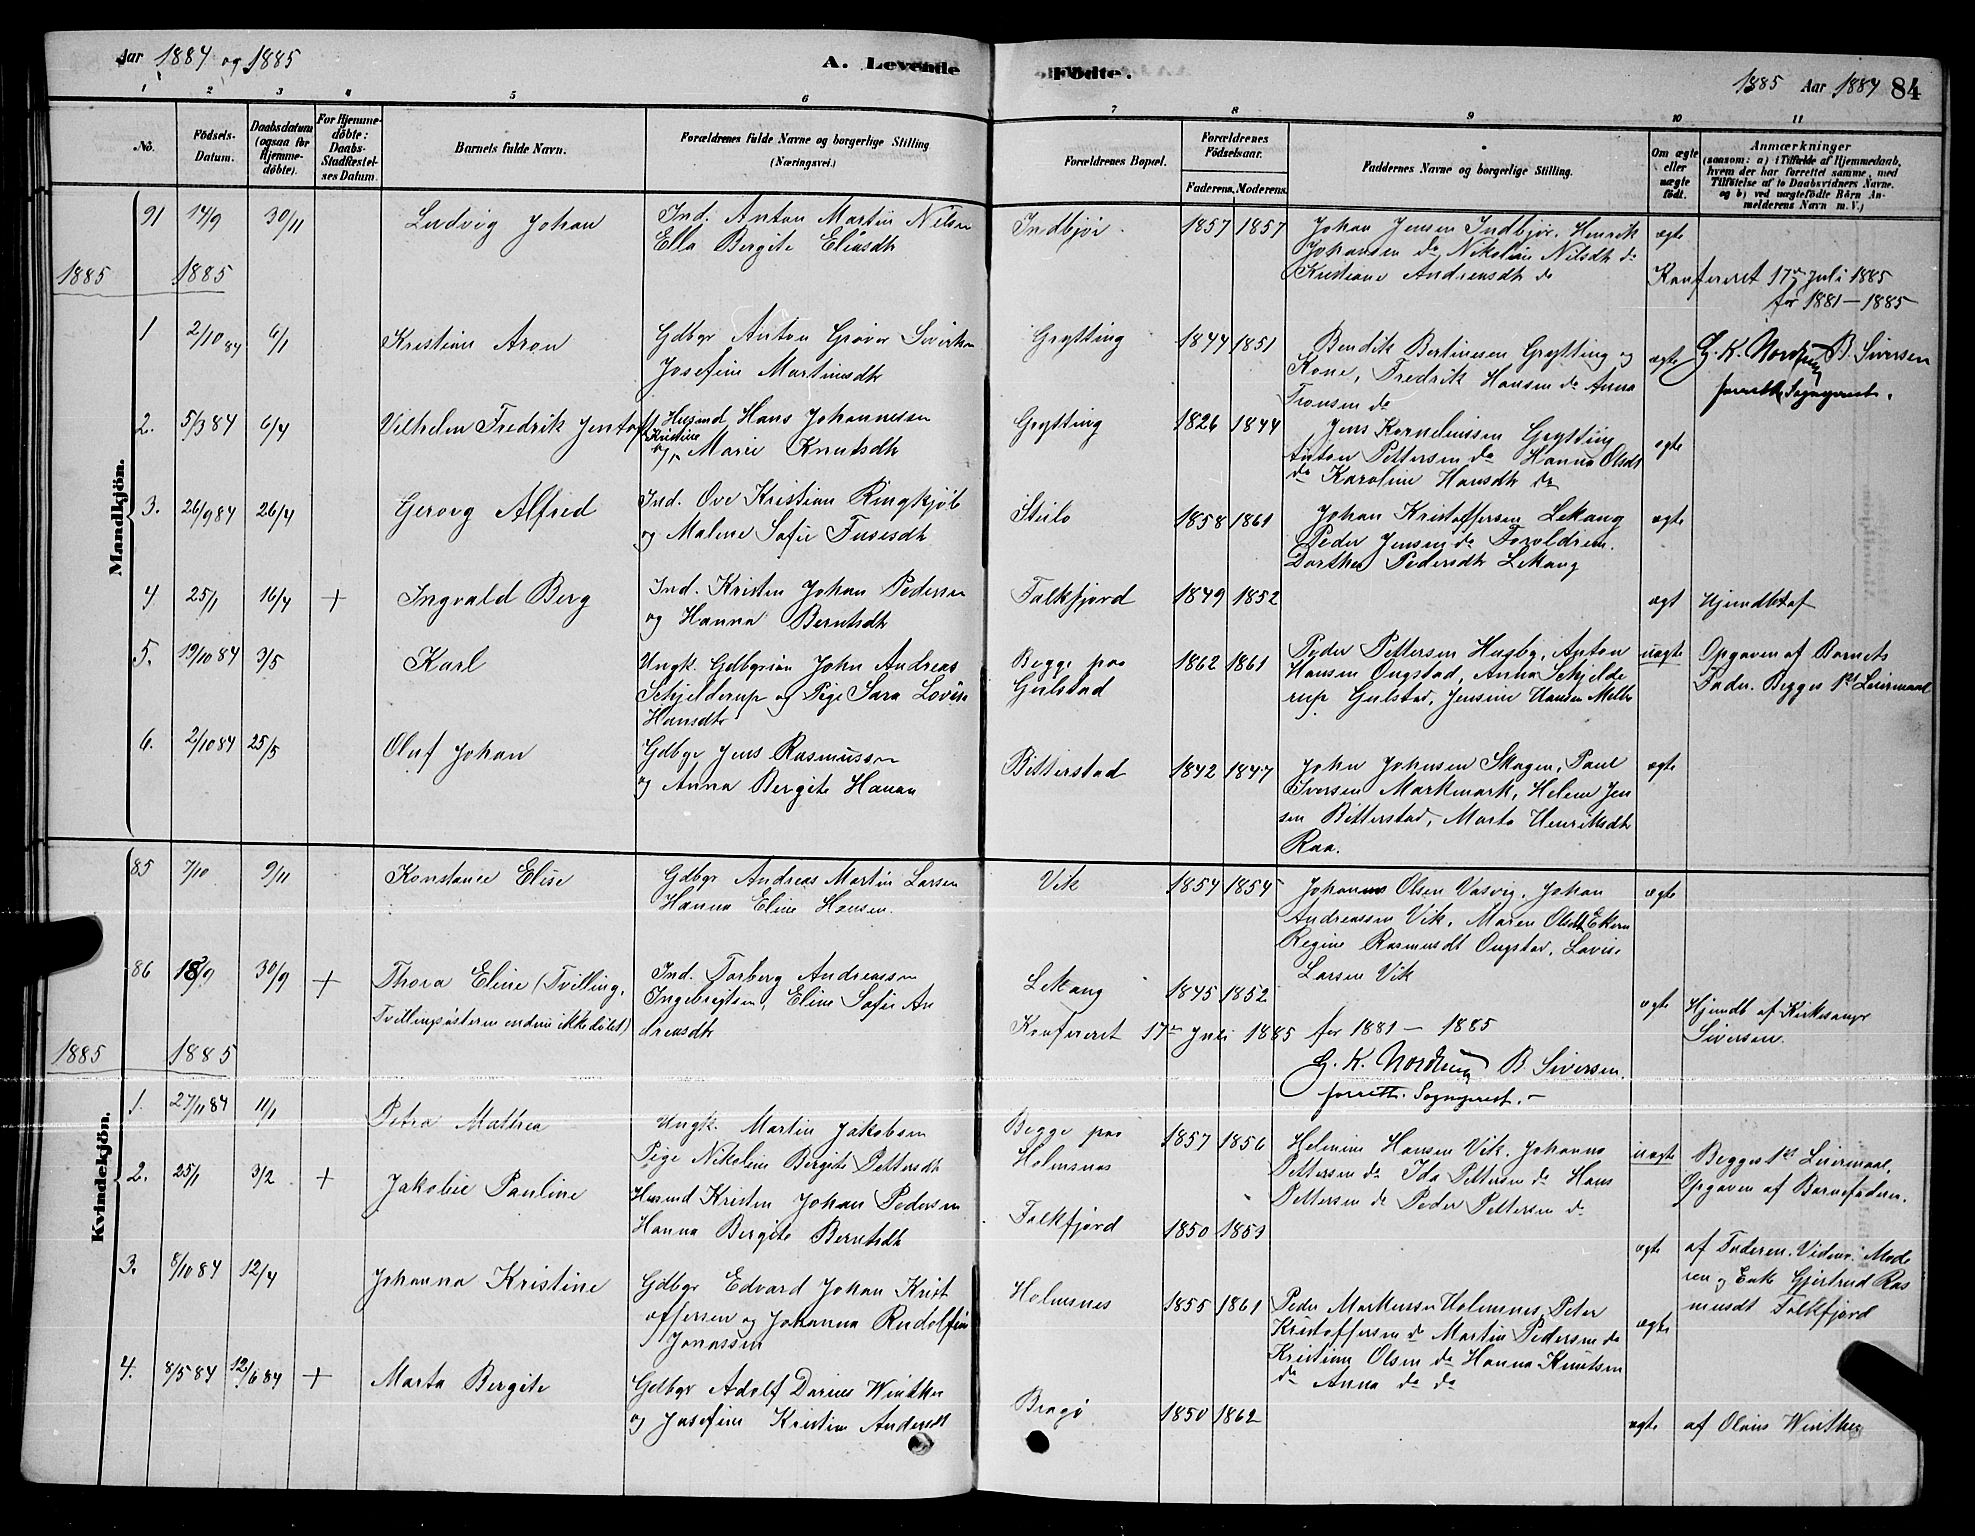 Aar 1884 og 1885
A. Levende
Fødte.
1885 Aar 1884 84
1 2 3 4 5 6 7 8 9 10 11
No.
Fødsels-
Datum.
Daabsdatum
(ogsaa for
Hjemme-
døbte).
For Hjemme-
døbte:
Daabs-
Stadfæstel-
ses Datum.
Barnets fulde Navn.
Forældrenes fulde Navne og borgerlige Stilling
(Næringsvei.)
Forældrenes Bopæl.
Forældrenes
Fødselsaar.
Faderens. Moderens.
Faddernes Navne og borgerlige Stilling.
Om ægte
eller
uægte
født.
Anmærkninger
(saasom: a) i Tilfælde af Hjemmedaab,
hvem der har forrettet samme, med
Tilføielse af to Daabsvidners Navne,
og b) ved uægtefødte Børn An-
melderens Navn m. V.)
Mandkjön.
91 17/9 30/11 Ludvig Johan
Ind. Anton Martin Nilsen
Ella Bergite Eliasdtr
Indbjör 1857 1857
Johan Jensen Indbjör, Henrik
Johansen do Nikoline Nilsdtr do
Kristiane Andreasdtr do
ægte
1885 1885
Konfereret 17de Juli 1885
for 1881 - 1885
G. K. Nordtung B. Siversen
forrett. Sognepræst.
1 2/10 84 6/1 Kristian Aron
Gdbgr Anton Grover Sivertsen
Josefine Martinusdtr
Grytting 1844 1851
Bendik Bertinesen Grytting og
Kone, Fredrik Hansen do Anna
Tronsen do
ægte
2. 5/3 84 6/4 Vilhelm Fredrik Jentoft
Husmd Hans Johannessen
og Kristine Marie Knutsdtr
Grytting 1826 1844
Jens Korneliussen Grytting
Anton Pettersen do Hanna Olsdtr
do Karoline Hansdtr do
ægte
3. 26/9 84 26/4 Georg Alfred
Ind. Ove Kristian Ringkjöb
og Malene Sofie Tusesdtr
Steilo 1858 1861
Johan Kristoffersen Lekang
Peder Jensen do Forældrene.
Dorthea Pedersdtr Lekang
ægte
4 25/1 16/4 + Ingvald Berg
Ind. Kristen Johan Pedersen
og Hanna Berntsdtr
Falkfjord 1849 1852
ægt Hjemdbt af
5. 19/10 84 3/5 Karl
Ungk. Gdbgrsön John Andreas
Schjelderup og Pige Sara Lovise
Hansdtr
Begge paa
Gulstad 1862 1861
Peder Pettersen Husby, Anton
Hansen Ongstad, Anna Schjelde
rup Gulstad, Jensine Hansen Melbo
uægte
Opgaven af Barnets
Fader. Begges 1ste Leiermaal
6. 2/10 84 25/5 Oluf Johan
Gdbgr Jens Rasmussen
og Anna Bergite Hansen
Bitterstad 1842 1847
John Johnsen Skagen, Paul
Iversen Markmark, Helene Jen
sen Bitterstad, Marta Henriksdtr
Raa.
ægte
Kvindekjön.
85 7/10 9/11 Konstance Elise
Gdbgr Andreas Martin Larsen
Hanna Eline Hansen.
Vik 1854 1854
Johannes Olsen Vasvig, Johan
Andreassen Vik, Maren Olsdtr Ekren
Regine Rasmusdt Ongstad, Lovise
Larsen Vik
ægte
86 18/9 30/9 + Thora Eline (Tvilling,
Tvillingsösteren endnu ikke döbt)
Ind. Torberg Andreassen
Ingebrigtsen, Eline Sofie An
dreasdtr
Lekang 1845 1852
ægte
Hjemdb af Kirkesanger
Siversen.
Konfereret 17de Juli 1885 for 1881 - 1885
G. K. Nordtung B. Siversen.
forrett. Sognepræst.
1885 1885
1. 27/11 84 11/1 Petra Mathea
Ungk. Martin Jakobsen
Pige Nikoline Bergite Pettersdtr
Begge paa
Holmsnes 1857 1856
Helmine Hansen Vik, Johanna
Pettersen do Ida Pettersen do Hans
Pettersen do Peder Pettersen do
uægte
Begges 1st Leiermaal,
Opgaven af Barnefaderen.
2. 25/1 3/2 + Jakobie Pauline
Husmd Kristen Johan Pedersen
Hanna Bergite Berntsdtr
Falkfjord 1850 1851
ægte
af Faderen. Vidner: Mode
ren og Enke Gjertrud Ras
musdt Falkfjord
3. 8/10 84 12/4 Johanna Kristine
Gdbgr Edvard Johan Krist
offersen og Johanna Rudolfine
Jonassen
Holmsnes 1855 1861
Peder Markussen Holmsnes, Peter
Kristoffersen do Martin Pedersen do
Kristian Olsen do Hanna Knutsen
do Anna do do
ægte
4. 8/5 84 12/6 84 + Marta Bergite
Gdbgr Adolf Darius Winther
og Josefine Kristine Andersdt
Bragö 1850 1862
ægte af Olaus Winther